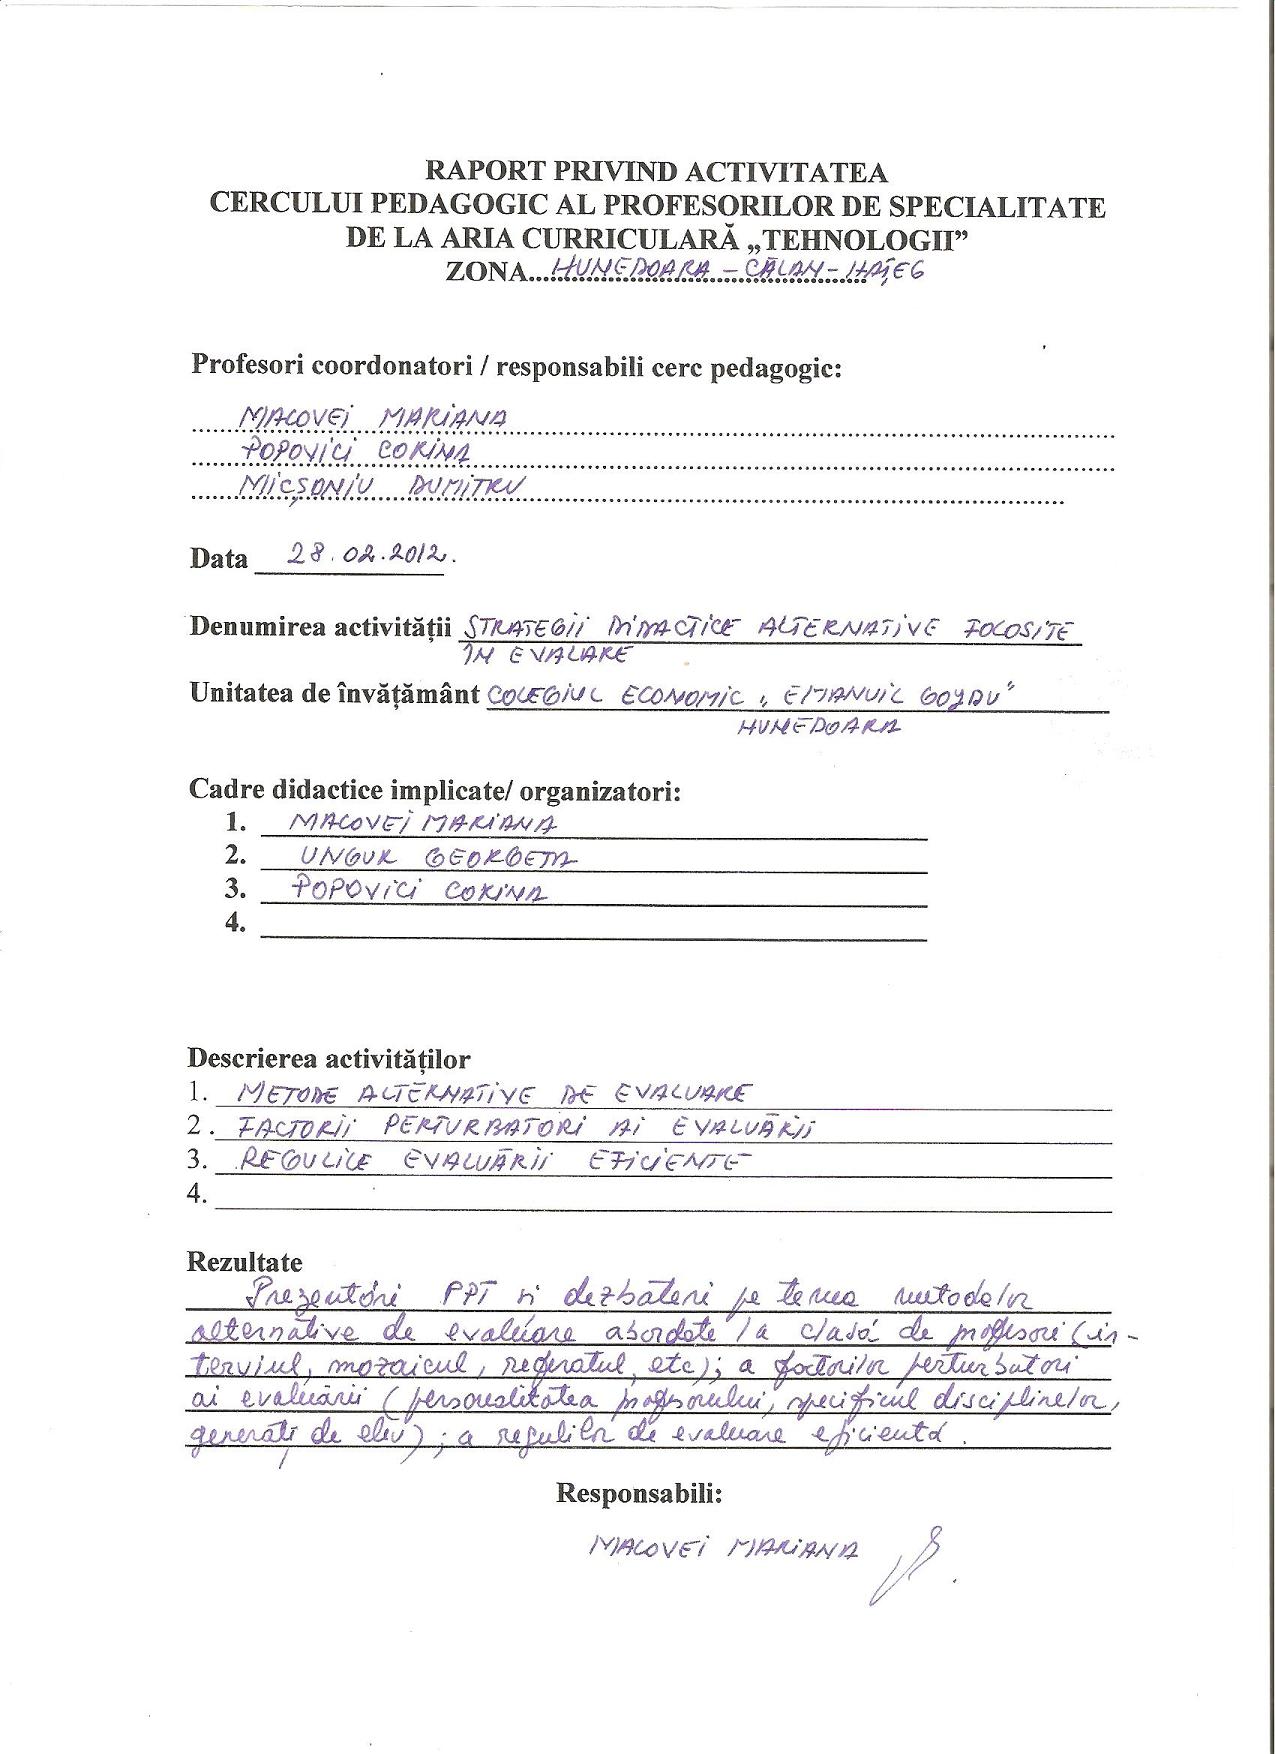 RAPORT PRIVIND ACTIVITATEA
CERCULUI PEDAGOGIC AL PROFESORILOR DE SPECIALITATE
DE LA ARIA CURRICULARĂ „TEHNOLOGII”
ZONA...HUNEDOARA – CĂLAN – HAȚEG
Profesori coordonatori / responsabili cerc pedagogic:
MACOVEI MARIANA
POPOVICI CORINA
MICȘONIU DUMITRU
Data 28.02.2012.
Denumirea activității STRATEGII DIDACTICE ALTERNATIVE FOLOSITE
ÎN EVALARE
Unitatea de învățământ COLEGIUL ECONOMIC „EMANUIL GOJDU"
HUNEDOARA
Cadre didactice implicate/ organizatori:
1. MACOVEI MARIANA
2. UNGUR GEORGETA
3. POPOVICI CORINA
4.
Descrierea activităților
1. METODE ALTERNATIVE DE EVALUARE
2 . FACTORII PERTURBATORI AI EVALUĂRII
3. REGULILE EVALUĂRII EFICIENTE
4.
Rezultate
Prezentări PPT și dezbateri pe tema metodelor
alternative de evaluare abordate la clasă de profesori (in-
terviul, mozaicul, referatul, etc); a factorilor perturbatori
ai evaluării (personalitatea profesorului, specificul disciplinelor,
generați de elev); a regulilor de evaluare eficientă.
Responsabili:
MACOVEI MARIANA